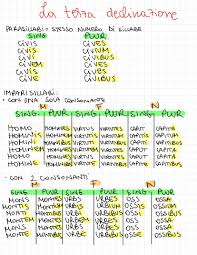 La terza declinazione
PARASILLABI = STESSO NUMERO DI SILLABE
SING PLUR
CIVIS CIVES
CIVIS CIVIUM
CIVI CIVIBUS
CIVEM CIVES
CIVIS CIVES
CIVE CIVIBUS
IMPARISILLABI:
• CON UNA SOLA CONSONANTE
M F N
SING PLUR SING PLUR SING PLUR
HOMO HOMINES VIRTUS VIRTUTES CAPUT CAPITA
HOMINIS HOMINUM VIRTUTIS VIRTUTUM CAPITIS CAPITUM
HOMINI HOMINIBUS VIRTUTI VIRTUTIBUS CAPITI CAPITIBUS
HOMINEM HOMINES VIRTUTEM VIRTUTES CAPUT CAPITA
HOMO HOMINES VIRTUS VIRTUTES CAPUT CAPITA
HOMINE HOMINIBUS VIRTUTE VIRTUTIBUS CAPITE CAPITIBUS
• CON 2 CONSONANTI
M F N
SING PLUR SING PLUR SING PLUR
MONS MONTES URBS URBES OS OSSA
MONTIS MONTIUM URBIS URBIUM OSSIS OSSIUM
MONTI MONTIBUS URBI URBIBUS OSSI OSSIBUS
MONTEM MONTES URBEM URBES OS OSSA
MONS MONTES URBS URBES OS OSSA
MONTE MONTIBUS URBE URBIBUS OSSE OSSIBUS